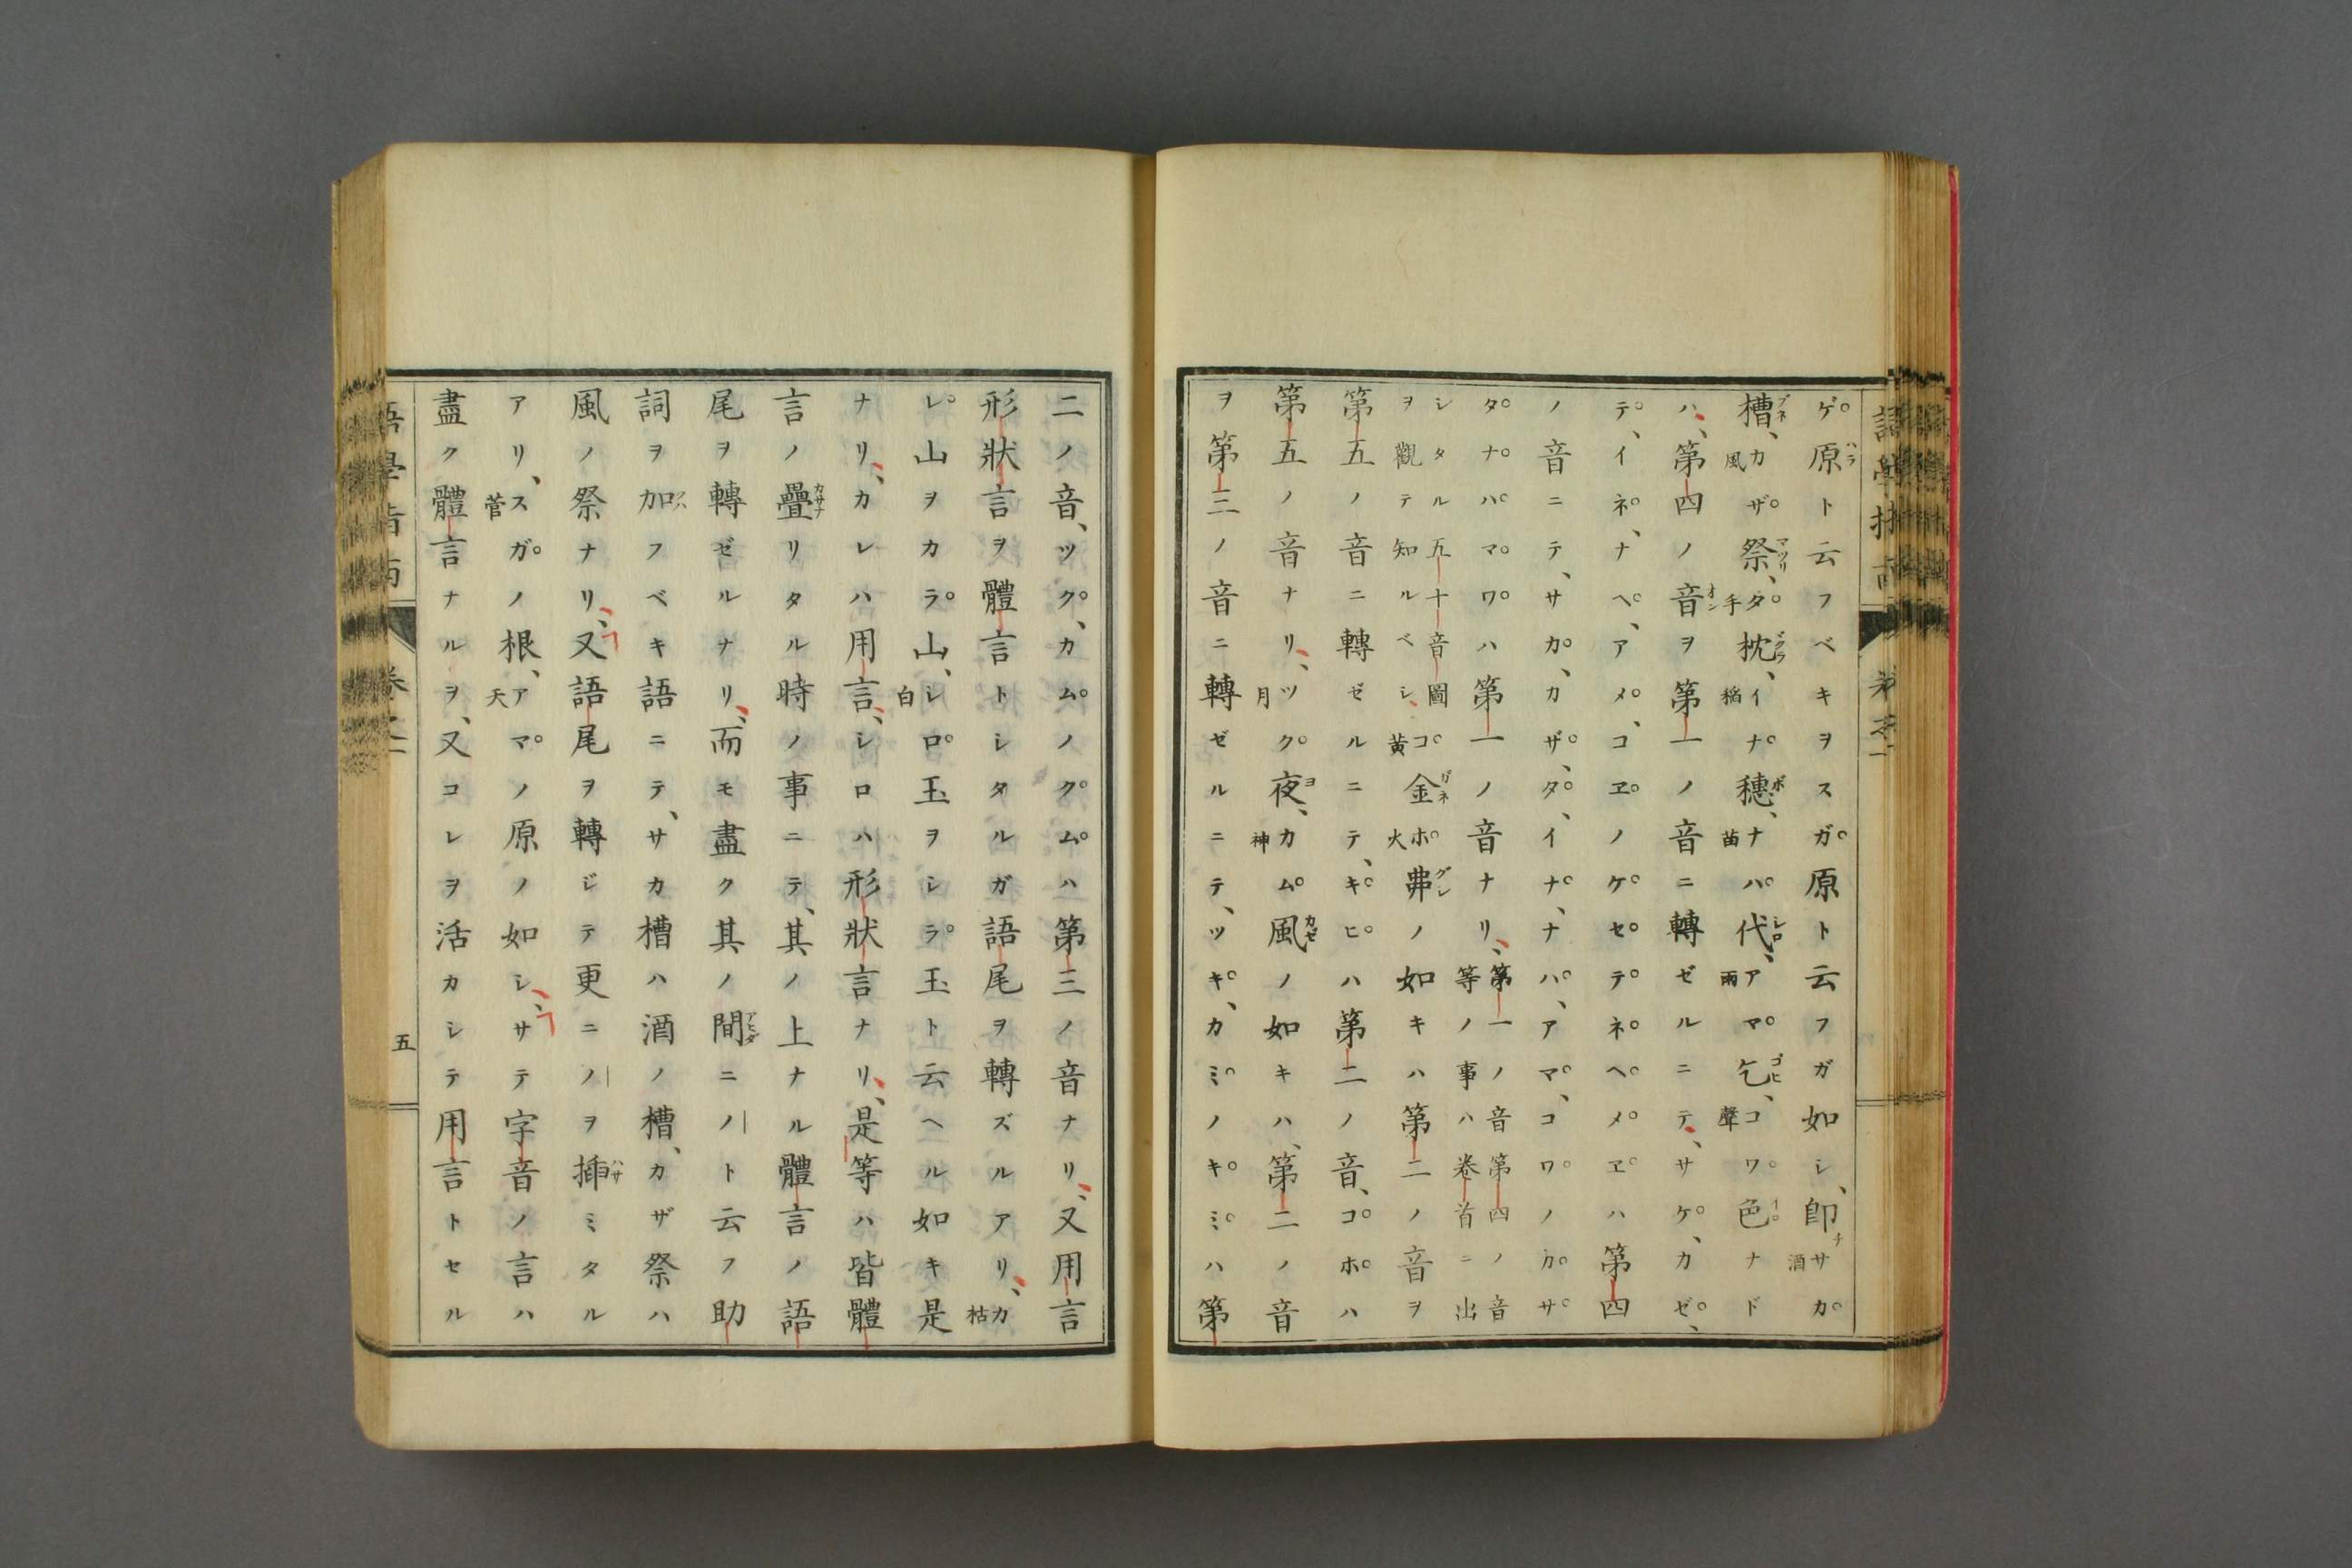 語學指南
ゲ原ト云フベキヲスガ原ト云フガ如シ、卽サカ酒
槽、カザ風祭、タ手枕、イナ稲穗、ナハ苗代、アマ雨乞、コワ聲色ナド
ハ、第四ノ音ヲ第一ノ音ニ轉ゼルニテ、サケ、カゼ、
テ、イネ、ナヘ、アメ、コヱノケセテネヘメヱハ第四
ノ音ニテ、サカ、カザ、タ、イナ、ナハ、アマ、コワノカサ
タナハマワハ第一ノ音ナリ、第一ノ音第四ノ音等ノ事ハ巻首ニ出
シタル五十音圖ヲ觀テ知ルベシ、コ黄金ホ火弗ノ如キハ第二ノ音ヲ
第五ノ音ニ轉ゼルニテ、キヒハ第二ノ音、コホハ
第五ノ音ナリ、ツク月夜、カム神風ノ如キハ、第二ノ音
ヲ第三ノ音ニ轉ゼルニテ、ツキ、カミノキミハ第
二ノ音、ツク、カムノクムハ第三ノ音ナリ、又用言
形狀言ヲ體言トシタルガ語尾ヲ轉ズルアリ、カ枯
レ山ヲカラ山、シ白ロ玉ヲシラ玉ト云ヘル如キ是
ナリ、カレハ用言、シロハ形狀言ナリ、是等ハ皆體
言ノ疊リタル時ノ事ニテ、其ノ上ナル體言ノ語
尾ヲ轉ゼルナリ、而モ盡ク其ノ間ニノト云フ助
詞ヲ加フベキ語ニテ、サカ槽ハ酒ノ槽、カザ祭ハ
風ノ祭ナリ、又語尾ヲ轉ジテ更ニノヲ揷ミタル
アリ、スガ菅ノ根、アマ天ノ原ノ如シ、サテ字音ノ言ハ
盡ク體言ナルヲ、又コレヲ活カシテ用言トセル
五